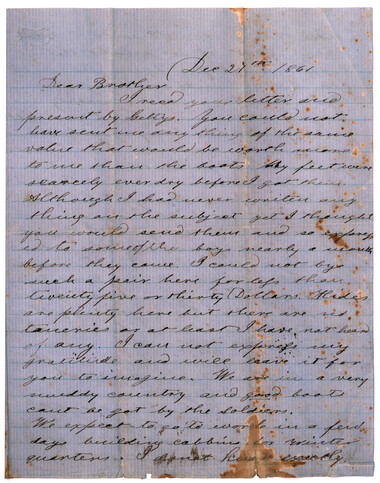 Dec 27th 1861
Dear Brother
I recd your letter and
present by Gettys. You could not
have sent me any thing of the same
value that would be worth more
to me than the boots. My feet were
scarcely ever dry before I got them.
Although I had never written any
thing on the subject yet I thought
you would send them and so express
ed to some of the boys nearly a month
before they came. I could not buy
such a pair here for less than
twenty five or thirty Dollars. Hides
are plenty here but there are no
taneries or at least I have not heard
of any. I can not express my
gratitude and will leave it for
you to imagine. We are in a very
muddy country and good boots
cant be got by the soldiers.
We expect to go to work in a few
days building cabbins for winter
quarters. I do not know exactly